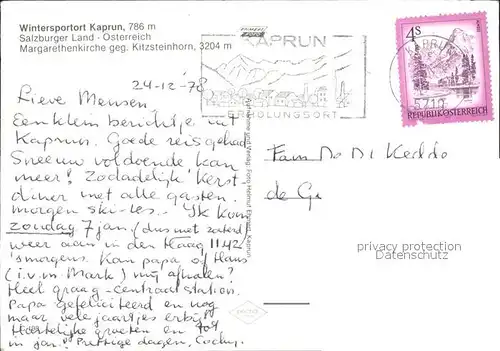 Wintersportort Kaprun, 786 m
Salzburger Land - Österreich
Margarethenkirche geg. Kitzsteinhorn, 3204 m
KAPRUN
ERHOLUNGSORT
4S
REPUBLIK ÖSTERREICH
KAPRUN
5710
24-12-'78
Lieve Mensen.
Een klein berichtje uit
Kaprun. Goede reis gehad
Sneeuw voldoende kan
meer! Zodadelijk Kerst
diner met alle gasten.
morgen ski-les. Ik kom
zondag 7 jan. (dus niet zaterd
weer aan in den Haag 11.42
's morgens. Kan papa of Hans
(i.v.m. Mark) mij afhalen?
Heel graag - centraal station.
Papa gefeliciteerd en nog
maar vele jaart, es erbij!
Hartelijke groeten en tot
in jan! Prettige dagen,
Fam
de
Aufnahme und Verlag: Foto Helmut Kaprun
protected by copyright
Datenschutz